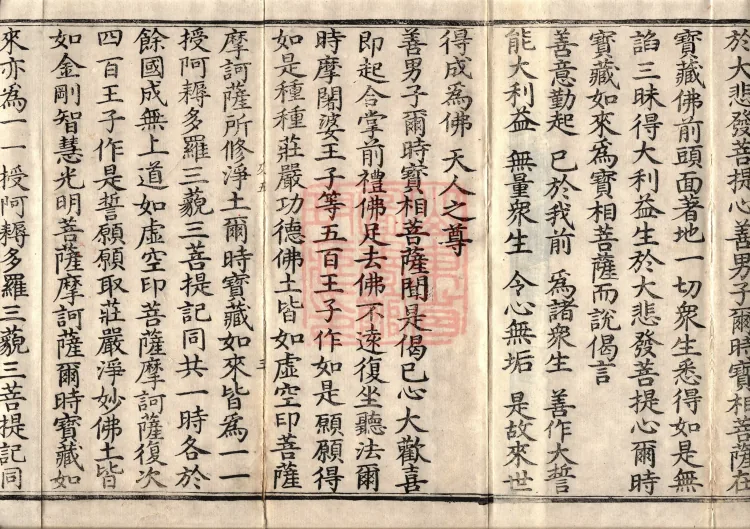 於大悲發菩提心善男子爾時寶相菩薩在
寶藏佛前頭面著地一切衆生悉得如是無
諂三昧得大利益生於大悲發菩提心爾時
寶藏如來爲寶相菩薩而說偈言
善意勤起 已於我前 爲諸衆生 善作大誓
能大利益 無量衆生 令心無垢 是故來世
得成爲佛 天人之尊
善男子爾時寶相菩薩聞是偈已心大歡喜
即起合掌前禮佛足去佛不遠復坐聽法爾
時摩闍婆王子等五百王子作如是願願得
如是種種莊嚴功德佛土皆如虛空印菩薩
摩訶薩所修淨土爾時寶藏如來皆爲一一
授阿耨多羅三藐三菩提記同共一時各於
餘國成無上道如虛空印菩薩摩訶薩復次
四百王子作是誓願願取莊嚴淨妙佛土皆
如金剛智慧光明菩薩摩訶薩爾時寶藏如
來亦為一一授阿耨多羅三藐三菩提記同